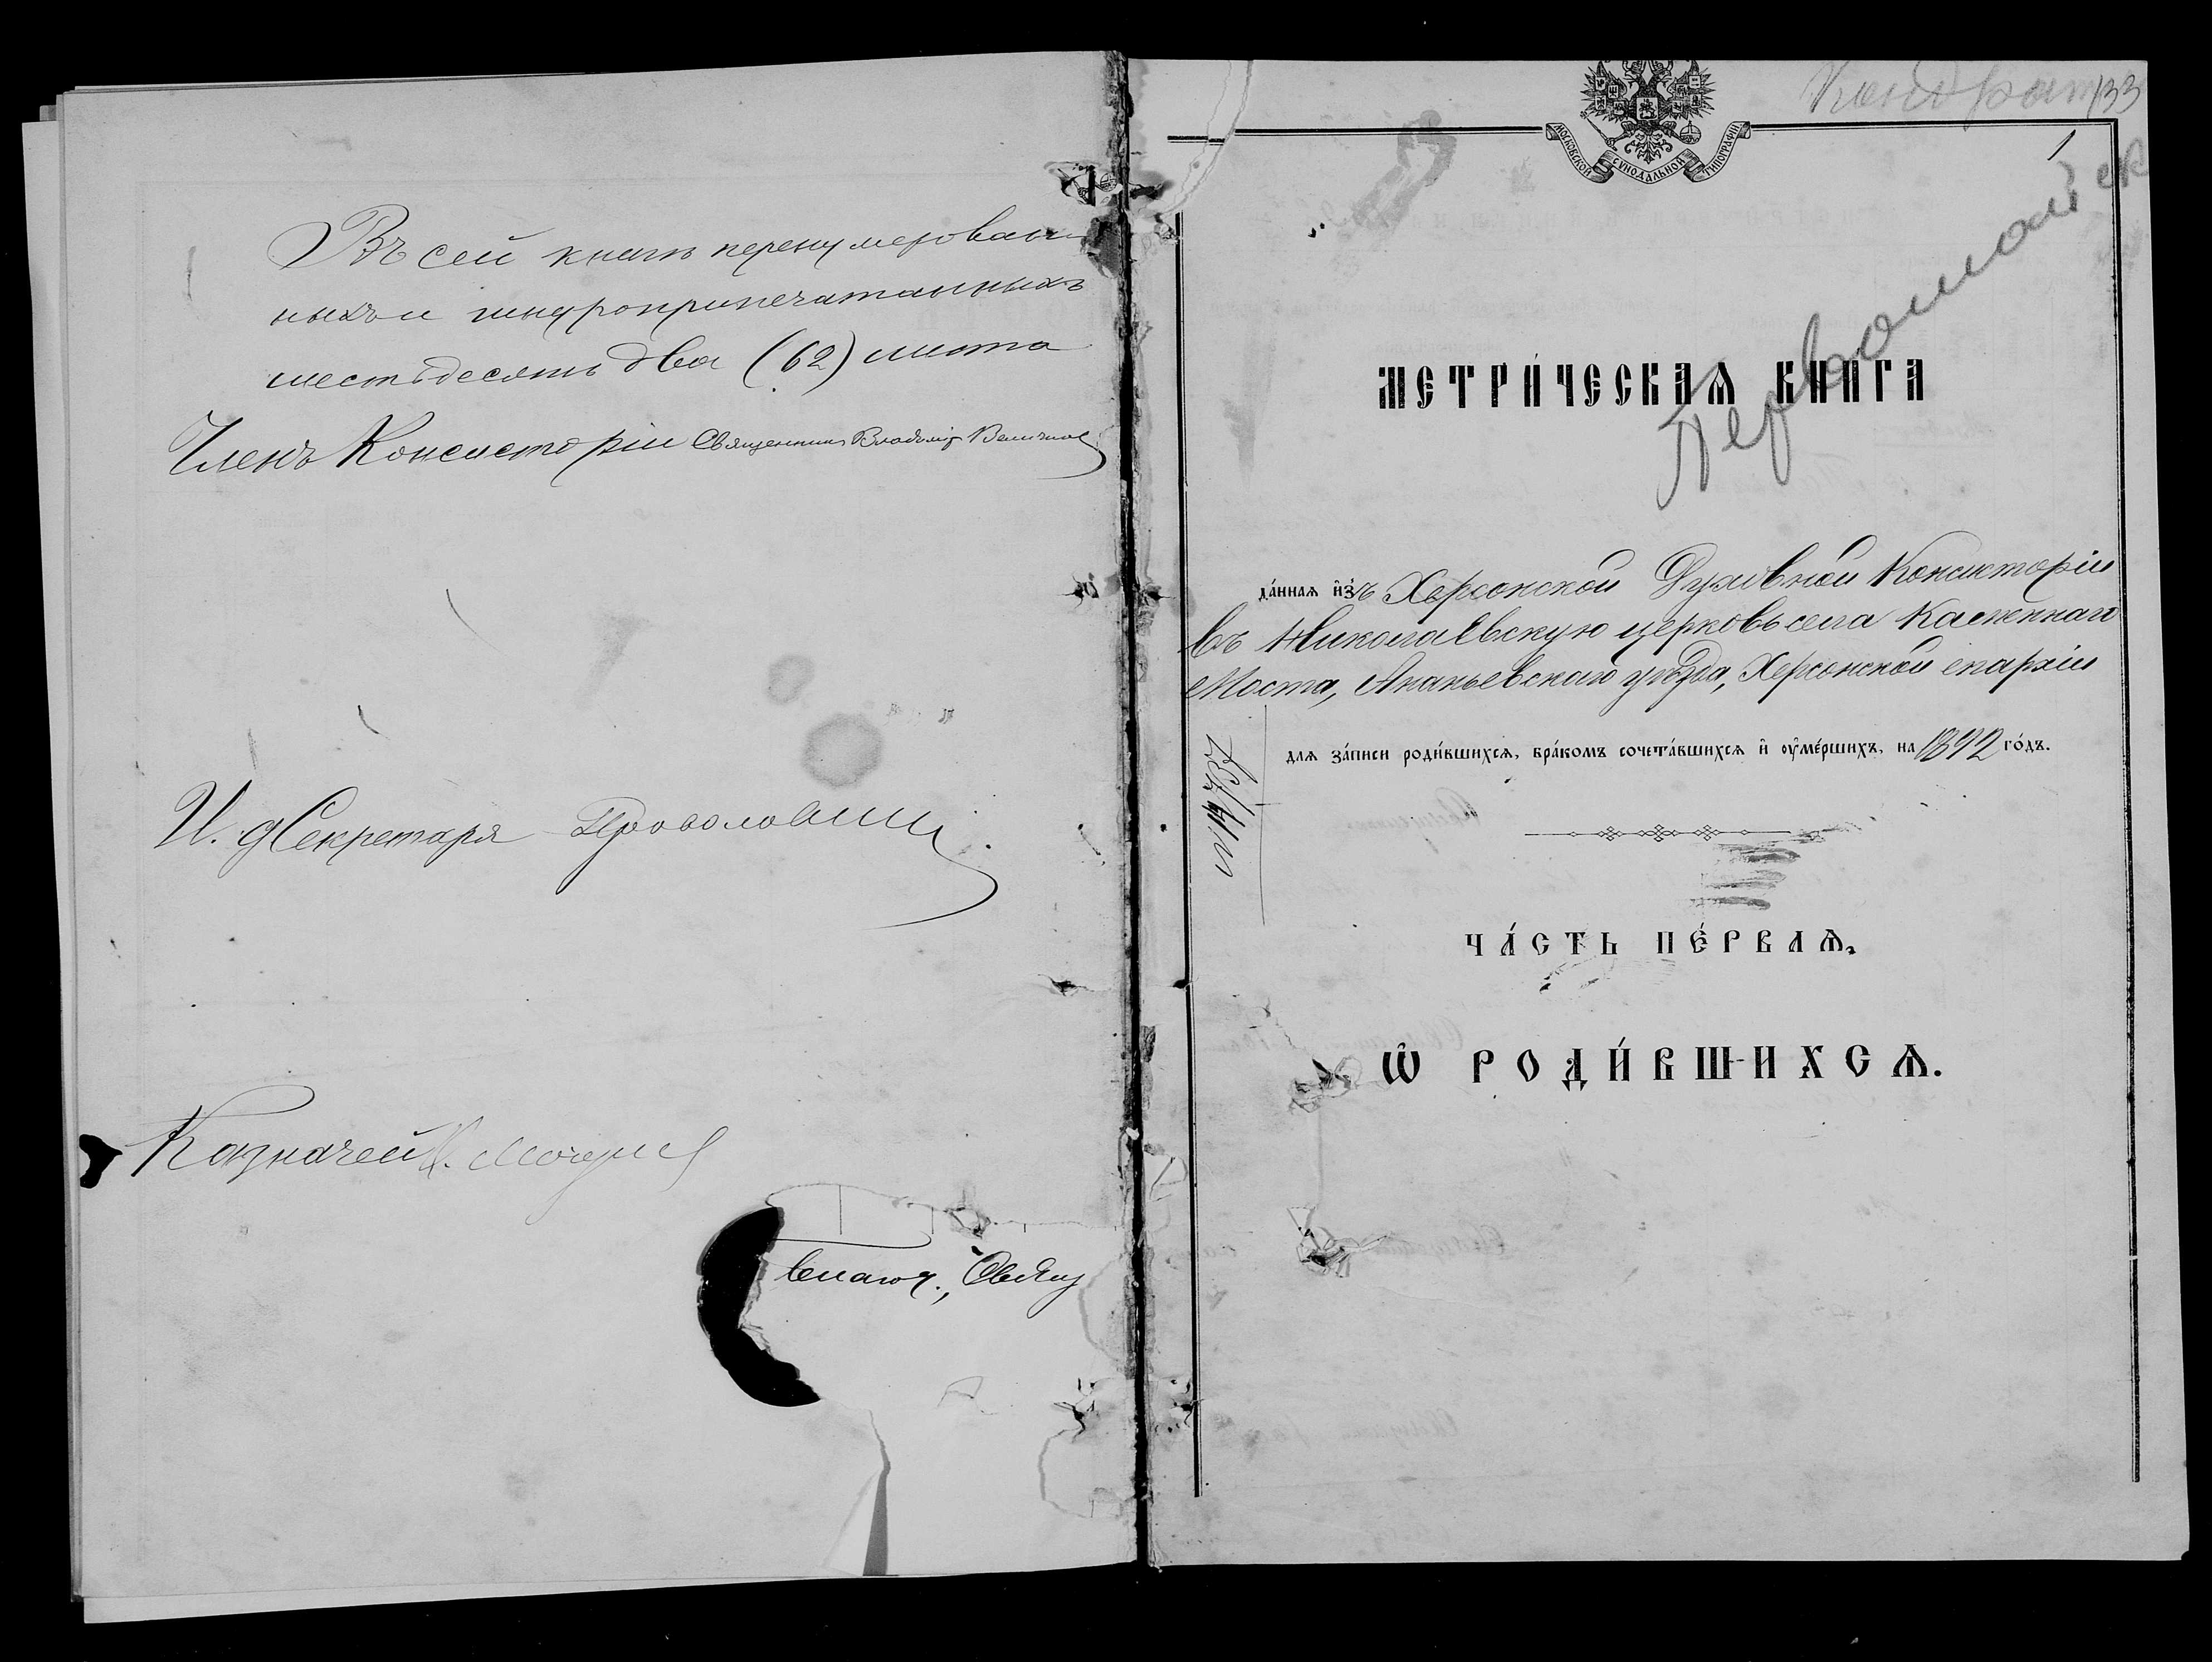 Въ сей книгѣ перенумерован-
ныхъ и шнуроприпечатанныхъ
шестьдесятъ два (62) листа
Членъ Консисторіи Священникъ Владиміръ
И. д Секретаря
Казначей
Кондрат 133
1
МОСКОВСКОЙ СѴНОДАЛЬНОЙ ТИПОГРАФІИ
Первомайск
МЕТРИ́ЧЕСКАѦ КНИ́ГА
да́ннаѧ и҆зъ Херсонской Духовной Консисторіи
въ Николаевскую церковь села Каменнаго
Моста, Ананьевскаго уѣзда, Херсонской епархіи
для за́писи роди́вшихсѧ, бра́комъ сочета́вшихсѧ и҆ оу҆ме́ршихъ, на 1892 го́дъ.
ЧА́СТЬ ПЕ́РВАѦ,
Ѡ҆ РОДИ́ВШИХСѦ.